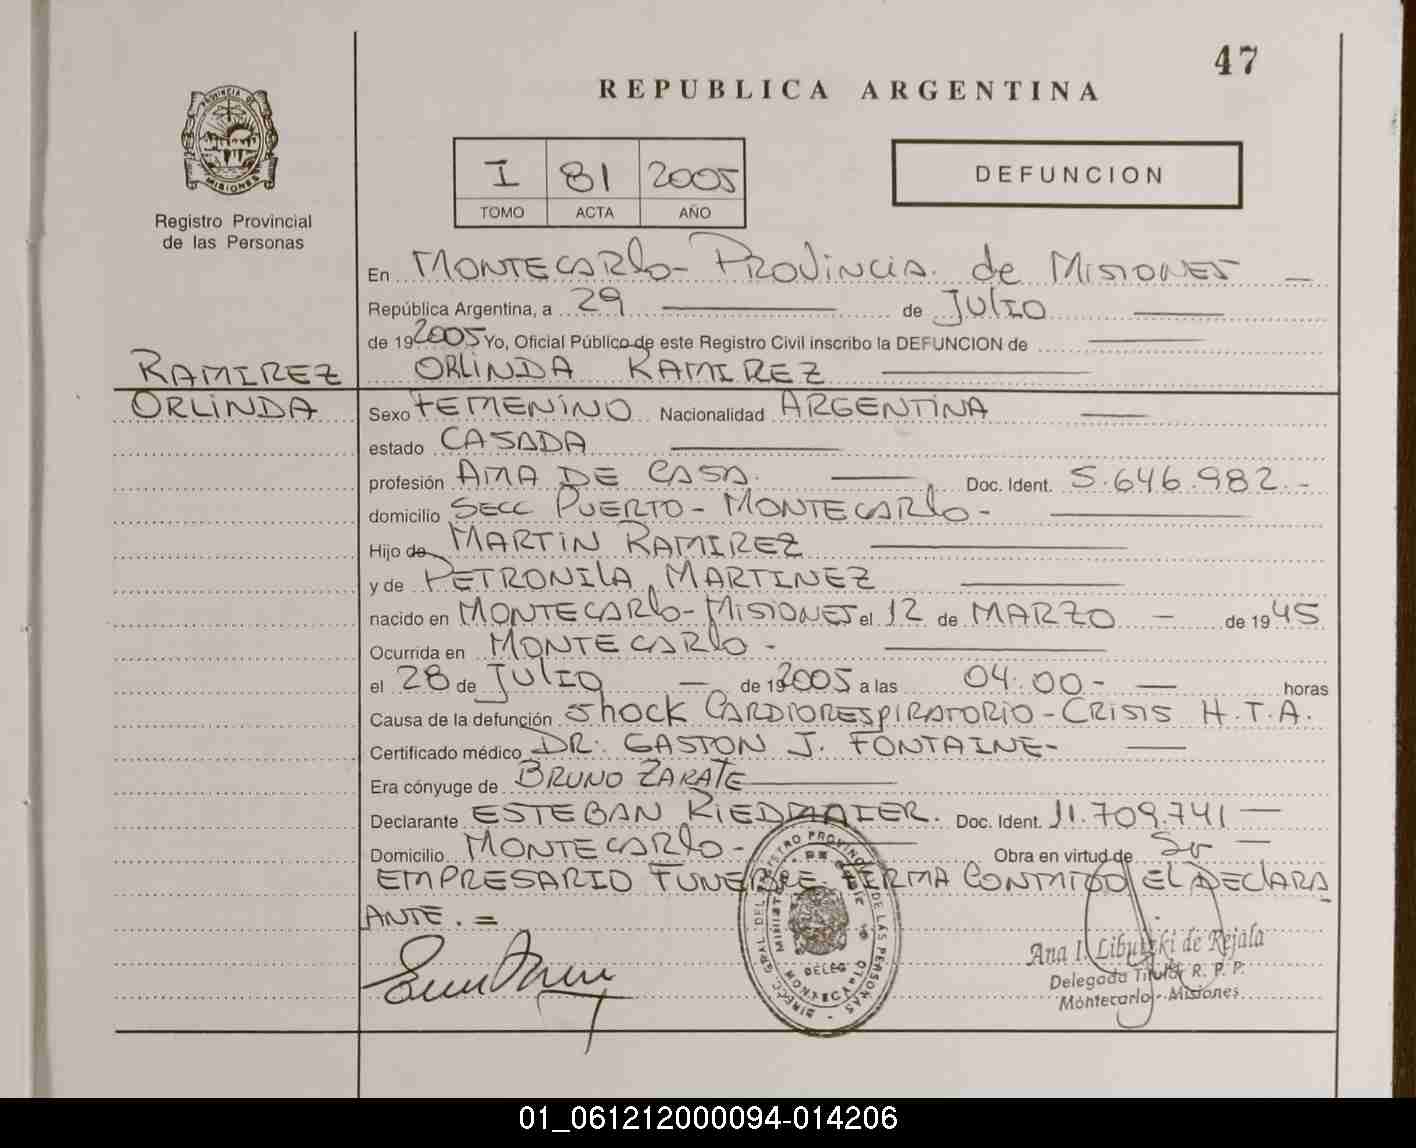 47
REPUBLICA ARGENTINA
PROVINCIA DE MISIONES
Registro Provincial
de las Personas
I 81 2005
TOMO ACTA AÑO
DEFUNCION
En MONTECARLO - PROVINCIA de MISIONES -
República Argentina, a 29 de JULIO
de 19 2005 Yo, Oficial Público de este Registro Civil inscribo la DEFUNCION de
RAMIREZ ORLINDA RAMIREZ
ORLINDA Sexo FEMENINO Nacionalidad ARGENTINA
estado CASADA
profesión AMA DE CASA. Doc. Ident. 5.646.982.-
domicilio SECC PUERTO - MONTECARLO -
Hijo de MARTIN RAMIREZ
y de PETRONILA MARTINEZ
nacido en MONTECARLO - MISIONES el 12 de MARZO - de 1945
Ocurrida en MONTECARLO -
el 28 de JULIO - de 19 2005 a las 04:00 - horas
Causa de la defunción SHOCK CARDIORESPIRATORIO - CRISIS H.T.A.
Certificado médico DR. GASTON J. FONTAINE -
Era cónyuge de BRUNO ZARATE
Declarante ESTEBAN RIEDMAIER. Doc. Ident. 11.709.741 -
Domicilio MONTECARLO - Obra en virtud de Su -
EMPRESARIO FUNEBRE. FIRMA CONMIGO EL DECLARA
ANTE. =
Ana I. de Rejala
Delegada Titular R. P. P.
Montecarlo - Misiones
01_061212000094-014206